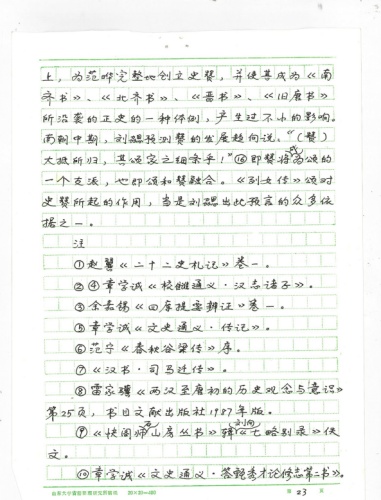 上，为范晔完整地创立史赞，并使其成为《南
齐书》、《北齐书》、《晋书》、《旧唐书》
所沿袭的正史的一种体例，产生过不小的影响。
而到中期，刘勰预测赞的发展趋向说。“（赞）
大抵所归，其颂家之细条乎！”⑯即赞将成为颂的
一个支派，也即颂和赞融合。《列女传》颂对
史赞所起的作用，当是刘勰出此预言的众多依
据之一。
注
①赵翼《二十二史札记》卷一。
②④章学诚《校雠通义·汉志诸子》。
③余嘉锡《四库提要辨证》卷一。
⑤章学诚《文史通义·传记》。
⑥范宁《春秋谷梁传》序。
⑦《汉书·司马迁传》。
⑧雷家骥《两汉至唐初的历史观念与意识》
第25页，书目文献出版社1987年版。
⑨《快阁师石山房丛书》辑刘向《七略别录》佚
文。
⑩章学诚《文史通义·答甄秀才论修志第二书》。
20×20=400
第 23 页